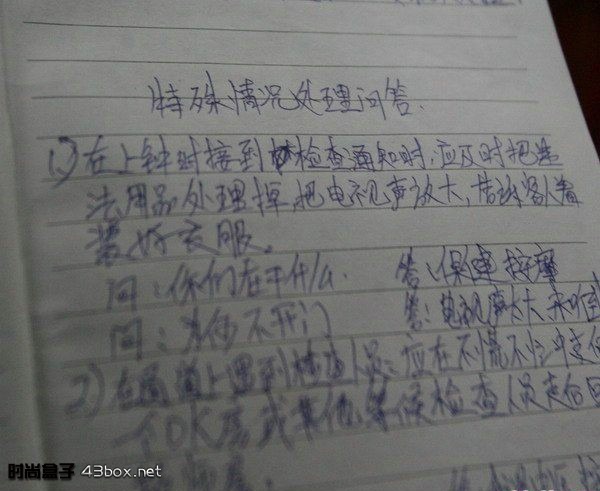 特殊情况处理问答.
1)在上钟时接到检查通知时,应及时把违
法用品处理掉,把电视声放大,告诉客人着
装好衣服.
问:你们在干什么. 答:保健按摩
问:为何不开门 答:电视声太大没听到
2)在通道上遇到检查人员:应在不慌不忙中走
一个OK房或其他,等候检查人员走
时尚盒子 43box.net